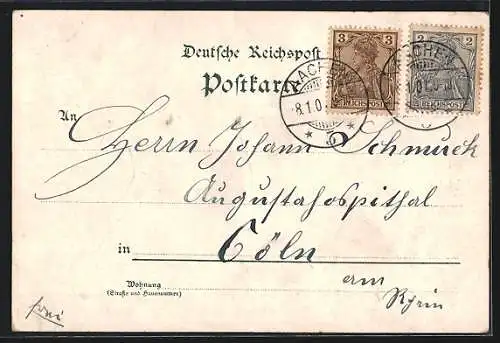 3 2
REICHSPOST REICHSPOST
AACHEN AACHEN
8.1.0
Deutsche Reichspost
Postkarte
An
Herrn Johann Schmuck
Augustahospithal
in Cöln
am
Rhein
Wohnung
(Straße und Hausnummer)
frei